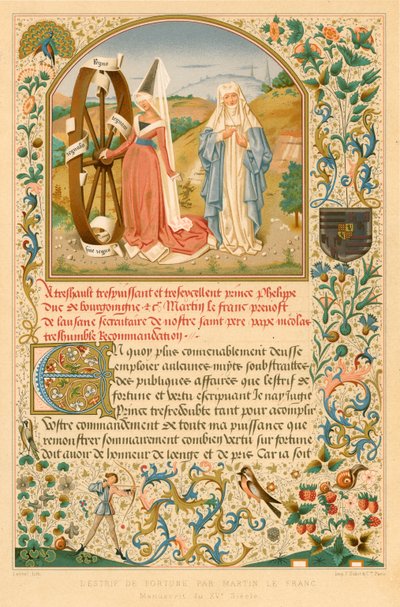 Regne
regnavi
regnabo
Sui regno
A treshault trespuissant et tresexcellent prince Phelippe
Duc de bourgoingne & cº. Martin le franc prevost
de lausane secretaire de nostre saint pere pape nicolas
treshumble Recommandation
En quoy plus convenablement deusse
emploier aulcunes nuits soubstraittes
des publiques affaires que lestrif de
fortune et vertu escripuant Je nay jugie
Prince tresredoubte tant pour acomplir
Vostre commandement de toute ma puissance que
remonstrer sommairement combien vertu sur fortune
doit avoir de honneur de loenge et de pris Car ia soit
Lebrel, lith.
Imp. F. Didot & Cie. Paris
L'ESTRIF DE FORTUNE PAR MARTIN LE FRANC
Manuscrit du XVe Siècle